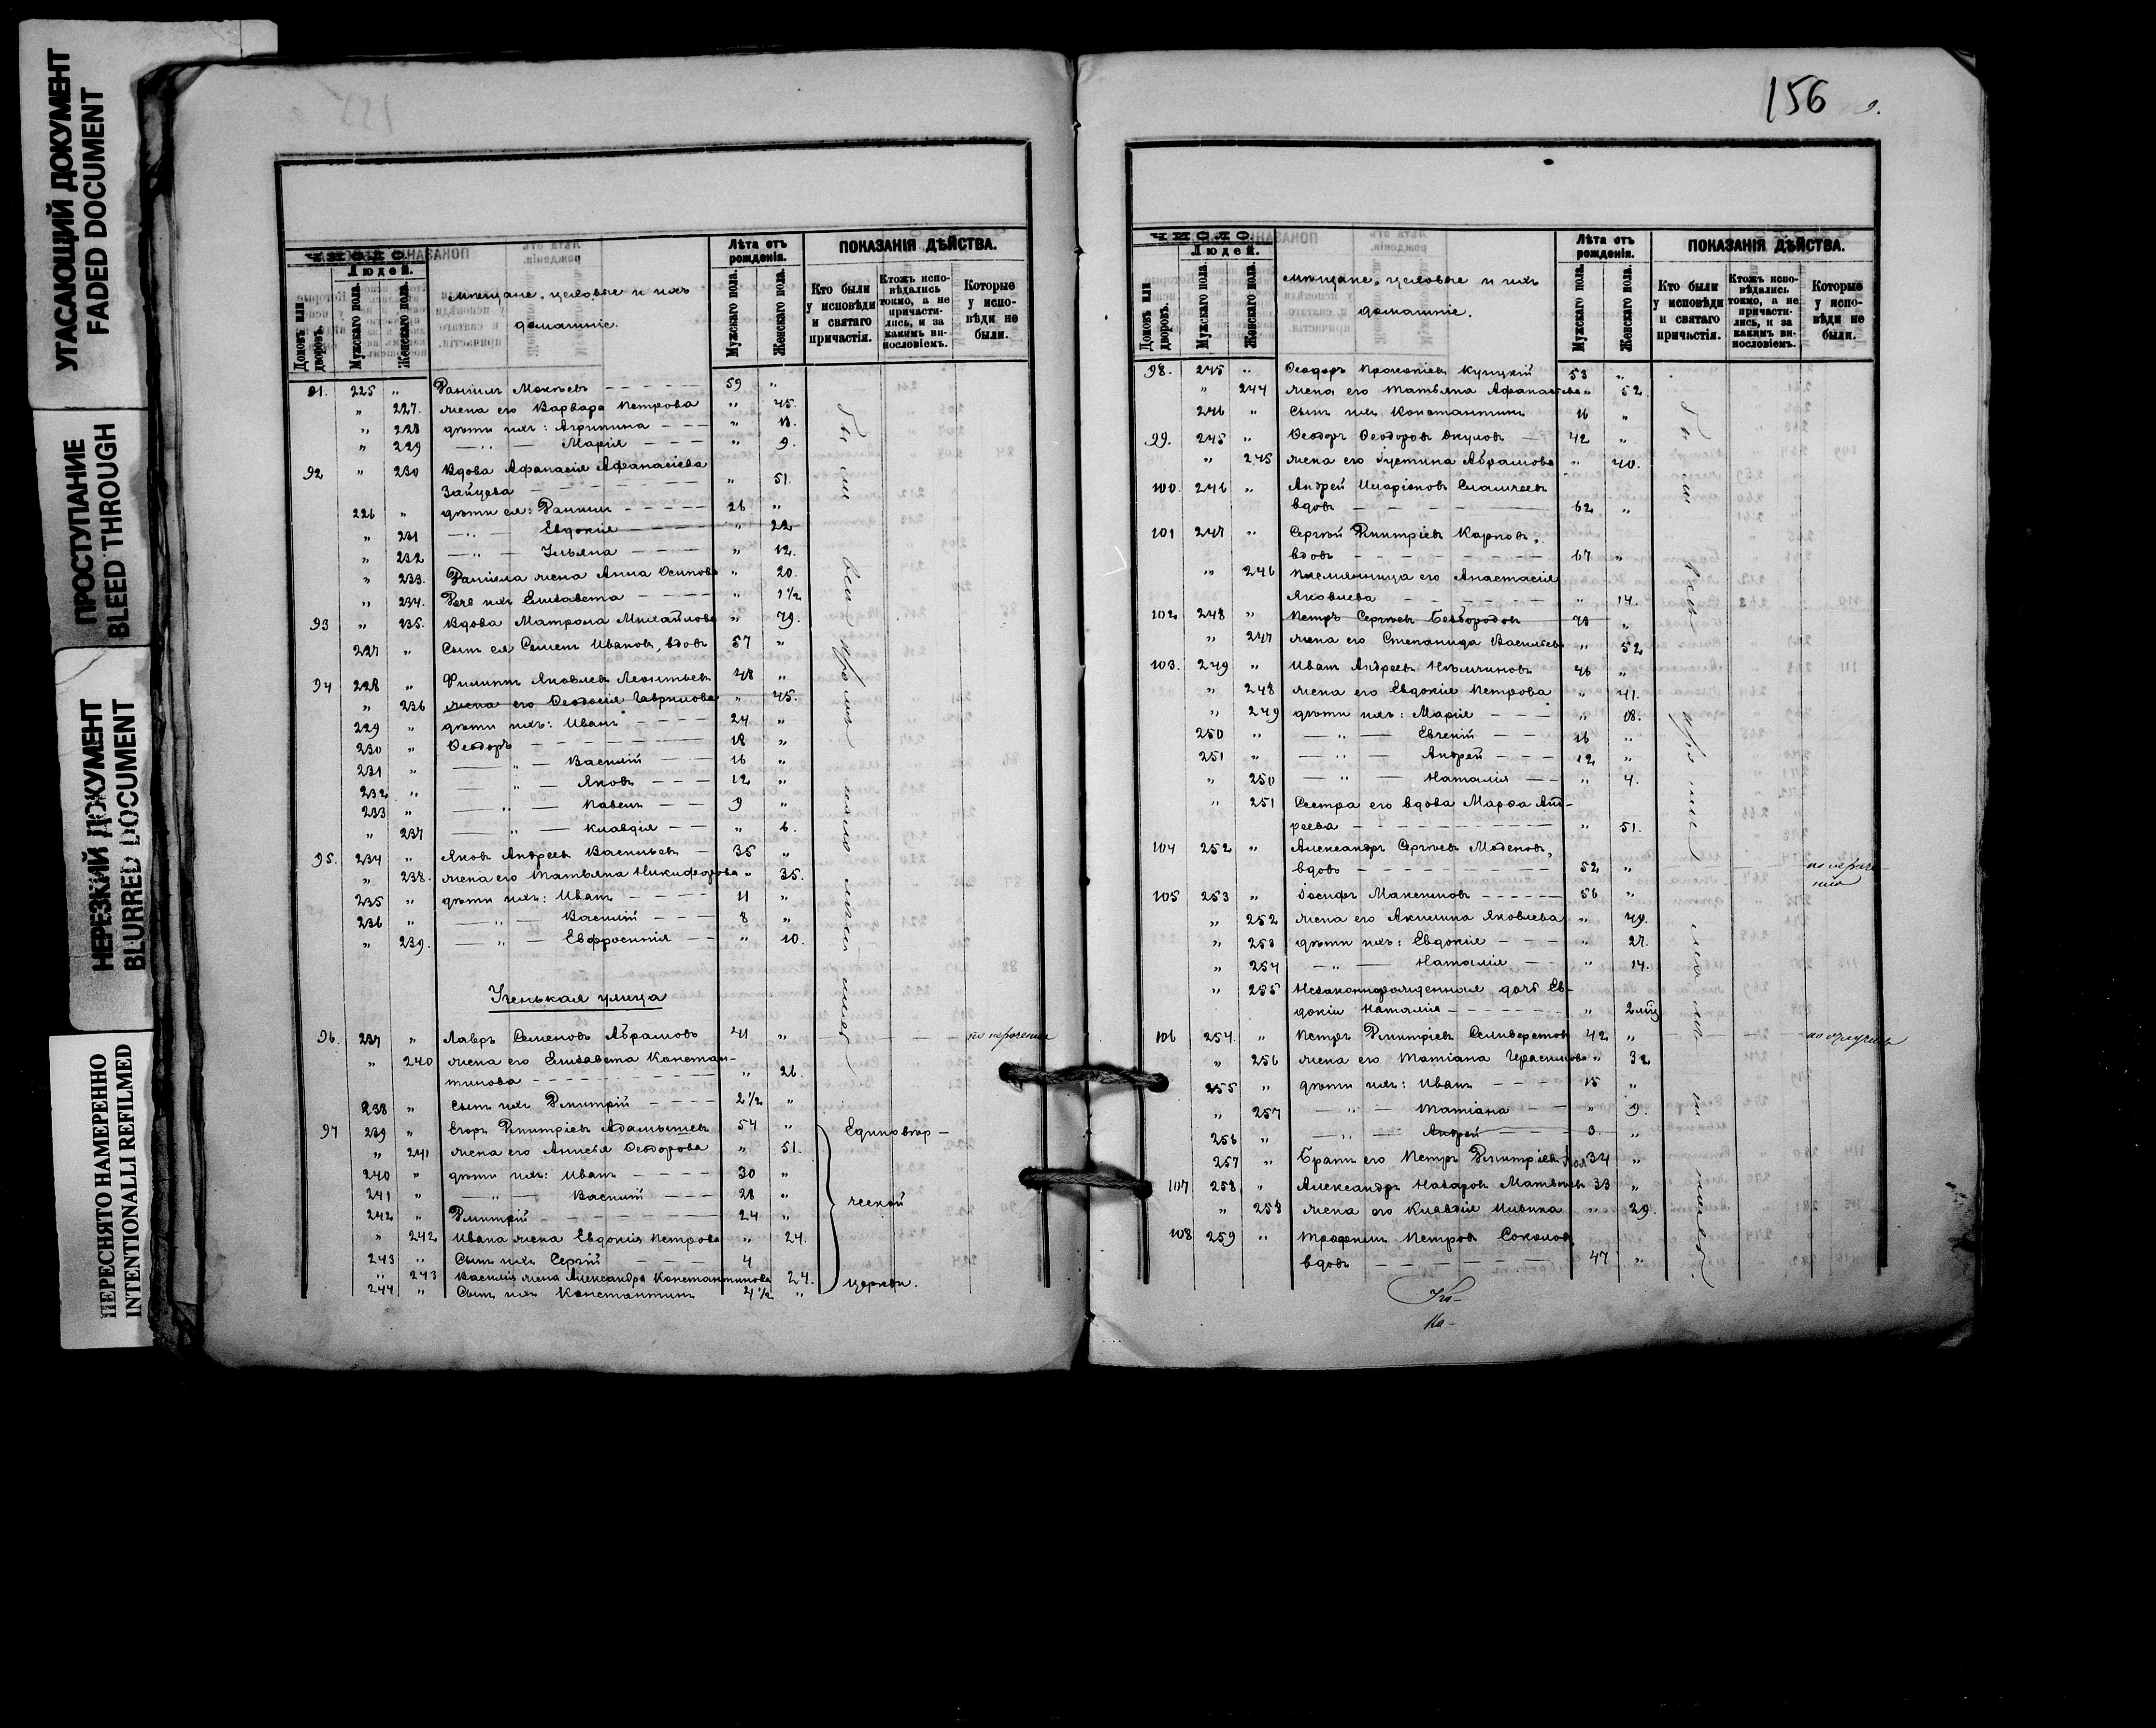 УГАСАЮЩИЙ ДОКУМЕНТ
FADED DOCUMENT
ПРОСТУПАНИЕ
BLEED THROUGH
НЕРЕЗКИЙ ДОКУМЕНТ
BLURRED DOCUMENT
ПЕРЕСНЯТО НАМЕРЕННО
INTENTIONALLI REFILMED
ЧИСЛО.
Людей.
Домовъ или дворовъ.
Мужскаго пола.
Женскаго пола.
Мѣщане, цеховые и ихъ
домашніе.
Лѣта отъ рожденія.
Мужскаго пола.
Женскаго пола.
ПОКАЗАНІЯ ДѢЙСТВА.
Кто были у исповѣди и святаго причастія.
Ктожъ исповѣдались токмо, а не причастились, и за какимъ винословіемъ.
Которые у исповѣди не были.
91. 225 „ Даніилъ Мокѣевъ 59 „
„ 227. жена его Варвара Петрова „ 45.
„ 228 дѣти ихъ: Агриппина „ 18.
„ 229 — „ — Марія „ 9.
92 „ 230 Вдова Афанасія Афанасіева
Зайцева „ 51.
226 „ дѣти ея: Даніилъ 26 „
„ 231 — „ — Евдокія „ 22
„ 232 — „ — Ульяна „ 12.
„ 233. Даніила жена Анна Осипова „ 20.
„ 234. Дочь ихъ Елисавета „ 1½
93 „ 235. Вдова Матрона Михайлова „ 79.
227 „ Сынъ ея Семенъ Ивановъ, вдовъ 57 „
94 228 „ Филиппъ Яковлевъ Леонтьевъ 48 „
„ 236 жена его Ѳеодосія Гаврилова „ 45.
229 „ дѣти ихъ: Иванъ 24 „
230 „ Ѳеодоръ 18 „
231 „ — „ — Василій 16 „
232 „ — „ — Яковъ 12 „
233 „ — „ — Павелъ 9 „
„ 237 — „ — Клавдія „ 6.
95. 234 „ Яковъ Андреевъ Васильевъ 35 „
„ 238. жена его Татьяна Никифорова „ 35.
235 „ дѣти ихъ: Иванъ 11 „
236 „ — „ — Василій 8 „
„ 239. — „ — Евфросинія „ 10.
были всѣ кромѣ
улица
96. 237 „ Лавръ Семеновъ Абрамовъ 41 „
„ 240 жена его Елисавета Констан-
тинова „ 26.
238 „ Сынъ ихъ Дмитрій 2½ „
97 239 „ Егоръ Дмитріевъ 54 „ Единовѣр-
„ 241 жена его Анисья Ѳеодорова „ 51.
240 „ дѣти ихъ: Иванъ 30 „
241 „ — „ — Василій 28 „ ческой
242 „ Дмитрій 24 „
„ 242 Ивана жена Евдокія Петрова „ 24.
243 „ Сынъ ихъ Сергій 4
„ 243 Василія жена Александра Константинова 24. церкви.
244 „ Сынъ ихъ Константинъ „
156
ЧИСЛО.
Людей.
Домовъ или дворовъ.
Мужскаго пола.
Женскаго пола.
Мѣщане, цеховые и ихъ
домашніе.
Лѣта отъ рожденія.
Мужскаго пола.
Женскаго пола.
ПОКАЗАНІЯ ДѢЙСТВА.
Кто были у исповѣди и святаго причастія.
Ктожъ исповѣдались токмо, а не причастились, и за какимъ винословіемъ.
Которые у исповѣди не были.
98. 245 „ Ѳеодоръ Прокопіевъ 53 „
„ 244 жена его Татьяна Афанасьева „ 52
246 „ Сынъ ихъ Константинъ 16 „
99. 245 „ Ѳеодоръ Ѳеодоровъ Окуловъ 42 „
„ 245 жена его Іустина Абрамова „ 40.
100. 246 „ Андрей Иларіоновъ
вдовъ 62 „
101 247 „ Сергѣй Дмитріевъ Карповъ,
вдовъ 67 „
„ 246 Племянница его Анастасія
Яковлева „ 14.
102 248 „ Петръ Сергѣевъ Безбородовъ 70 „
„ 247 жена его Степанида Васильева „ 52
103. 249 „ Иванъ Андреевъ 46 „
„ 248 жена его Евдокія Петрова „ 41.
„ 249 дѣти ихъ: Марія „ 18.
250 „ — „ — Евгеній 16 „
251 „ — „ — Андрей 12 „
„ 250 — „ — Наталія „ 4.
„ 251 Сестра его вдова Марѳа Анд-
реева „ 51.
104 252 „ Александръ Сергѣевъ Моденовъ,
вдовъ 52 „ по нераче-
нію
105 253 „ Іосифъ Максимовъ 56 „
„ 252 жена его Акилина Яковлева „ 49.
„ 253 дѣти ихъ: Евдокія „ 27.
„ 254 — „ — Наталія „ 14.
„ 255 Незаконнорожденная дочь Ев-
докіи Наталія „
106 254. „ Петръ Дмитріевъ Селиверстовъ 42 „
„ 256 жена его Татіана Герасимова „ 32
255 „ дѣти ихъ: Иванъ 15 „
„ 257 — „ — Татіана „ 9.
256 „ — „ — Андрей 3. „
257 „ Братъ его Петръ Дмитріевъ 34 „
107 258 „ Александръ Назаровъ Матвѣевъ 33 „
„ 258 жена его Клавдія „ 29.
108 259 „ Трофимъ Петровъ Соколовъ
вдовъ 47 „